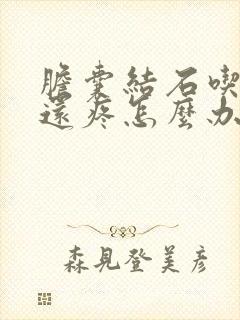 膽囊結石喫
還疼怎麼办
森見登美彥